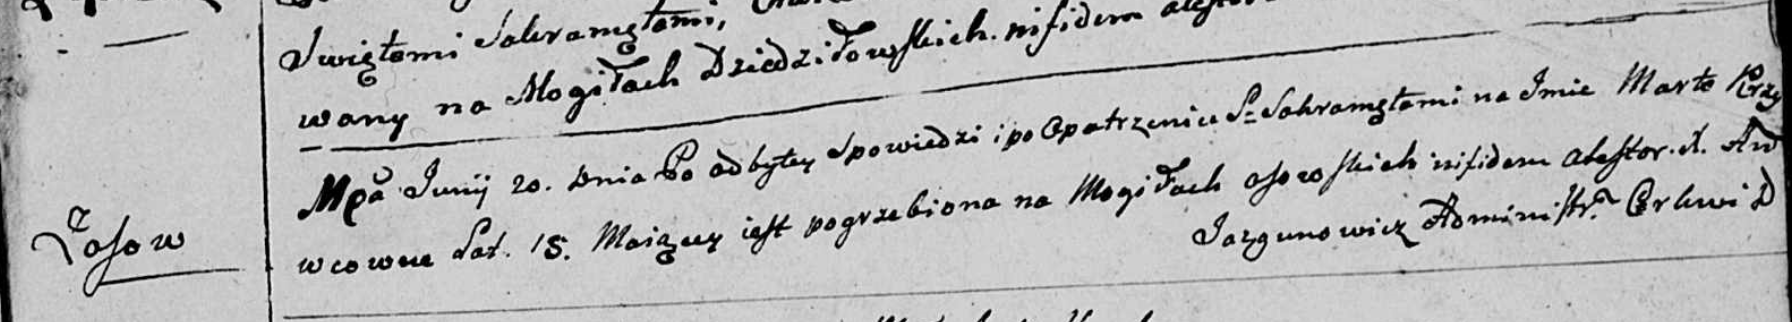 Swiętemi Sakramętami,
wany na Mogiłach Dziedziłowskich. in fidem
Mca Junij 20. Dnia Po odbyłey Spowiedzi i po Opatrzeniu S= Sakramętami na Imie Marta Krzy
Łosow
wcowne Lat. 15. Maiącey iest pogrzebiona na Mogiłach osowskich in fidem atestor. X.
Jazgunowicz Administr. Cerkwi D